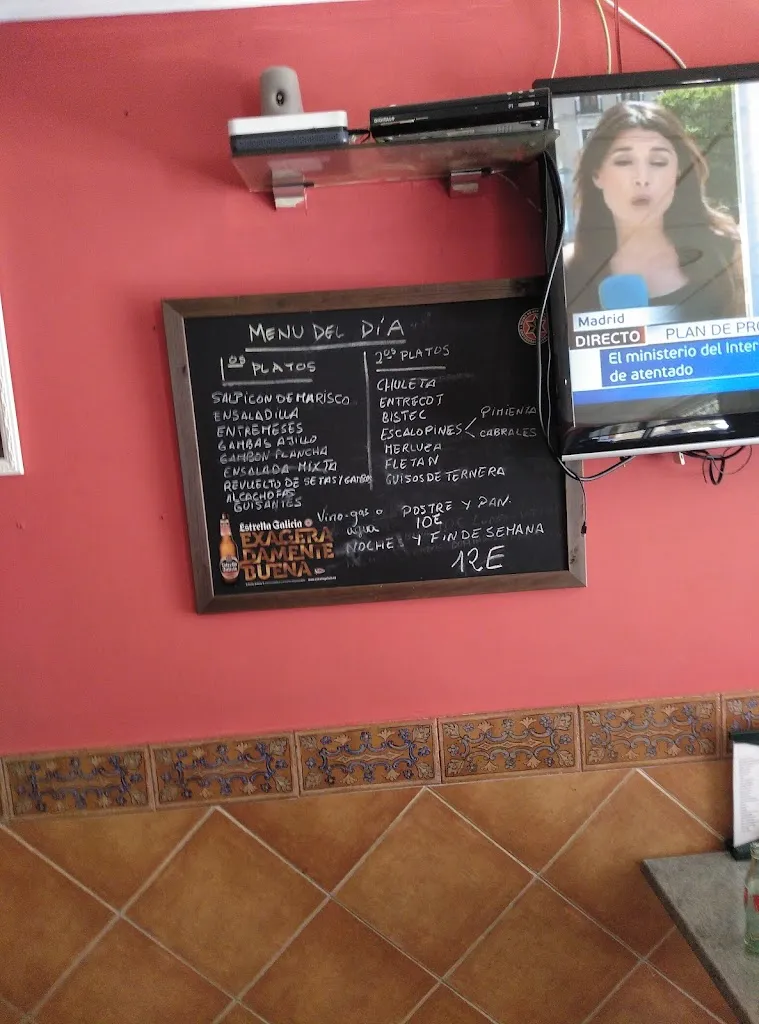 MENU DEL DÍA
1os PLATOS
SALPICON DE MARISCO
ENSALADILLA
ENTREMESES
GAMBAS AJILLO
GAMBON PLANCHA
ENSALADA MIXTA
REVUELTO DE SETAS Y GAMBAS
ALCACHOFAS
GUISANTES
2os PLATOS
CHULETA
ENTRECOT
BISTEC
ESCALOPINES < PIMIENTA
CABRALES
MERLUZA
FLETAN
GUISOS DE TERNERA
Vino-gas o
agua
POSTRE Y PAN.
10E
NOCHES Y FIN DE SEMANA
12E
Estrella Galicia
EXAGERA
DAMENTE
BUENA
Madrid
DIRECTO PLAN DE PRO
El ministerio del Inter
de atentado